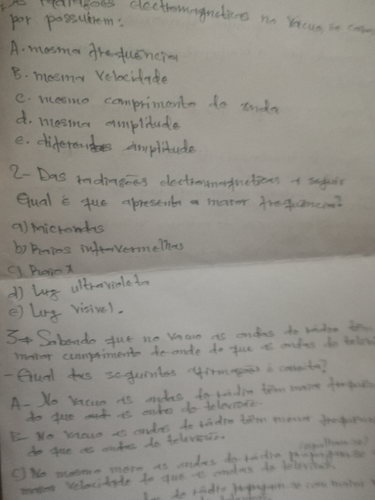 radiações electromagnéticas no vacuo se
por possuirem:
A. mesma frequência
B. mesma velocidade
c. mesmo comprimento de onda
d. mesma amplitude
e. diferentes amplitude
2- Das radiações electromagnéticas a seguir
Qual é que apresenta a maior frequência?
a) Microondas
b) Raios infravermelhas
c) Raio x
d) Luz ultravioleta
e) Luz visivel.
3- Sabendo que no vacuo as ondas de rádio têm
maior cumprimento de onda do que as ondas de
- Qual das seguintes afirmação é correta?
A- No vacuo as ondas de rádio têm maior
do que as ondas de televisão.
B- No vacuo as ondas de rádio têm menor
do que as ondas de televisão.
c) No mesmo meio as ondas de rádio
maior velocidade do que as ondas de
de rádio com maior